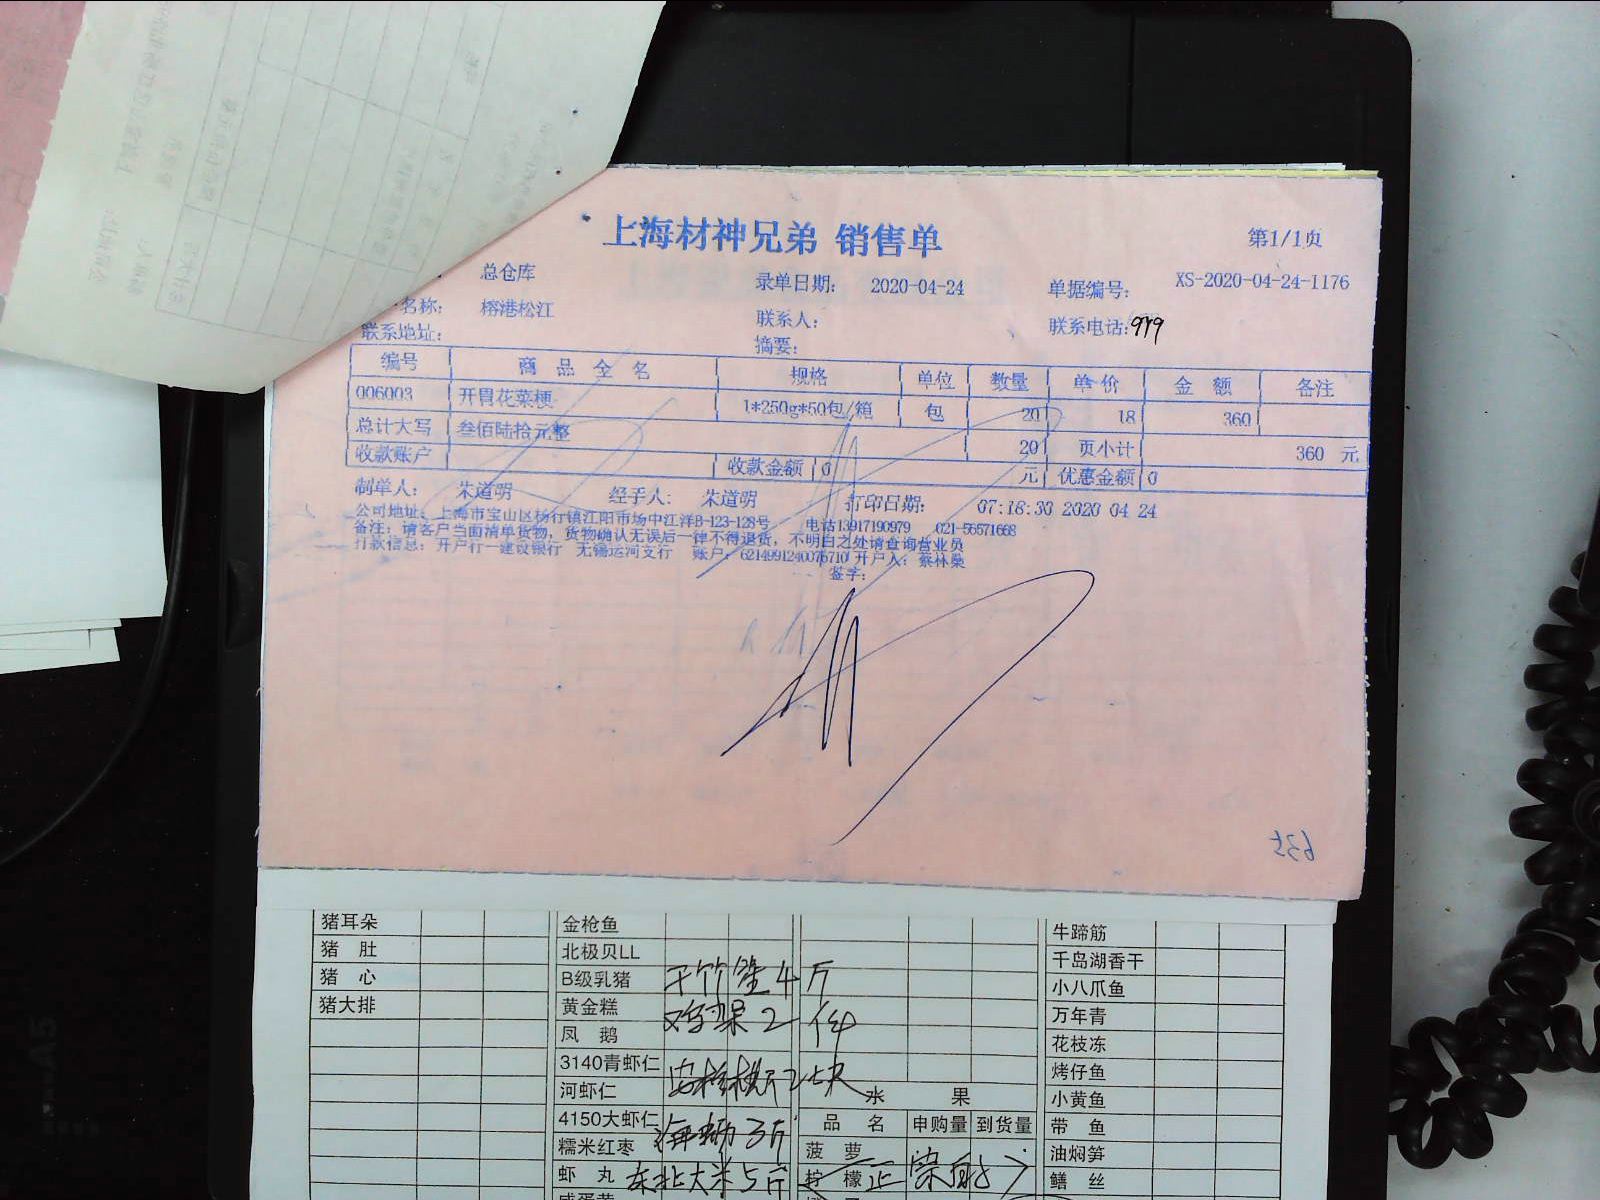 上海材神兄弟 销售单
第1/1页
总仓库 录单日期: 2020-04-24 单据编号: XS-2020-04-24-1176
名称: 榕港松江 联系人: 联系电话:979
联系地址: 摘要:
编号 商品全名 规格 单位 数量 单价 金额 备注
006003 开胃花菜梗 1*250g*50包/箱 包 20 18 360
总计大写 叁佰陆拾元整 20 页小计 360 元
收款账户 收款金额 0 元 优惠金额 0
制单人: 朱道明 经手人: 朱道明 打印日期: 07:18:30 2020 04 24
公司地址: 上海市宝山区杨行镇江阳市场中江洋B-123-128号 电话13917190979 021-56571668
备注: 请客户当面清单货物, 货物确认无误后一律不得退货, 不明白之处请查询营业员
打款信息: 开户行一建设银行 无锡运河支行 账户: 6214991240076710 开户人: 蔡林燊
签字:
635
猪耳朵 金枪鱼 牛蹄筋
猪肚 北极贝LL 千岛湖香干
猪心 B级乳猪 干竹笙4斤 小八爪鱼
猪大排 黄金糕 2件 万年青
凤鹅 花枝冻
3140青虾仁 烤仔鱼
河虾仁 水果 小黄鱼
4150大虾仁 3斤 品名 申购量 到货量 带鱼
糯米红枣 菠萝 油焖笋
虾丸 东北大米5斤 柠檬 正荣 鳝丝